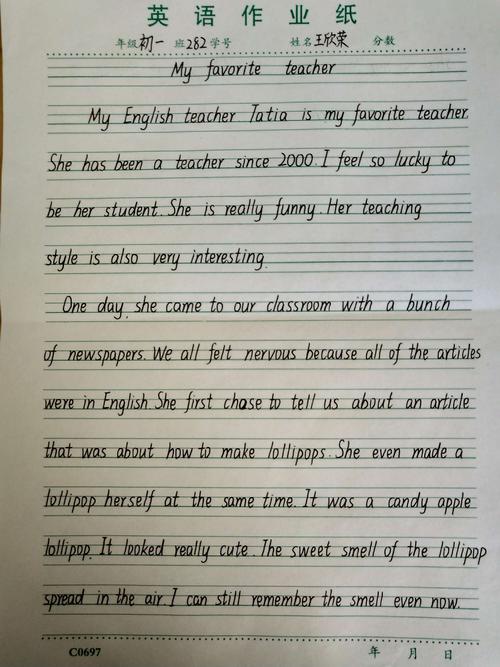 英语作业纸
年级初一 班282学号 姓名王欣荣 分数
My favorite teacher
My English teacher Tatia is my favorite teacher.
She has been a teacher since 2000. I feel so lucky to
be her student. She is really funny. Her teaching
style is also very interesting.
One day, she came to our classroom with a bunch
of newspapers. We all felt nervous because all of the articles
were in English. She first chose to tell us about an article
that was about how to make lollipops. She even made a
lollipop herself at the same time. It was a candy apple
lollipop. It looked really cute. The sweet smell of the lollipop
spread in the air. I can still remember the smell even now.
C0697 年 月 日